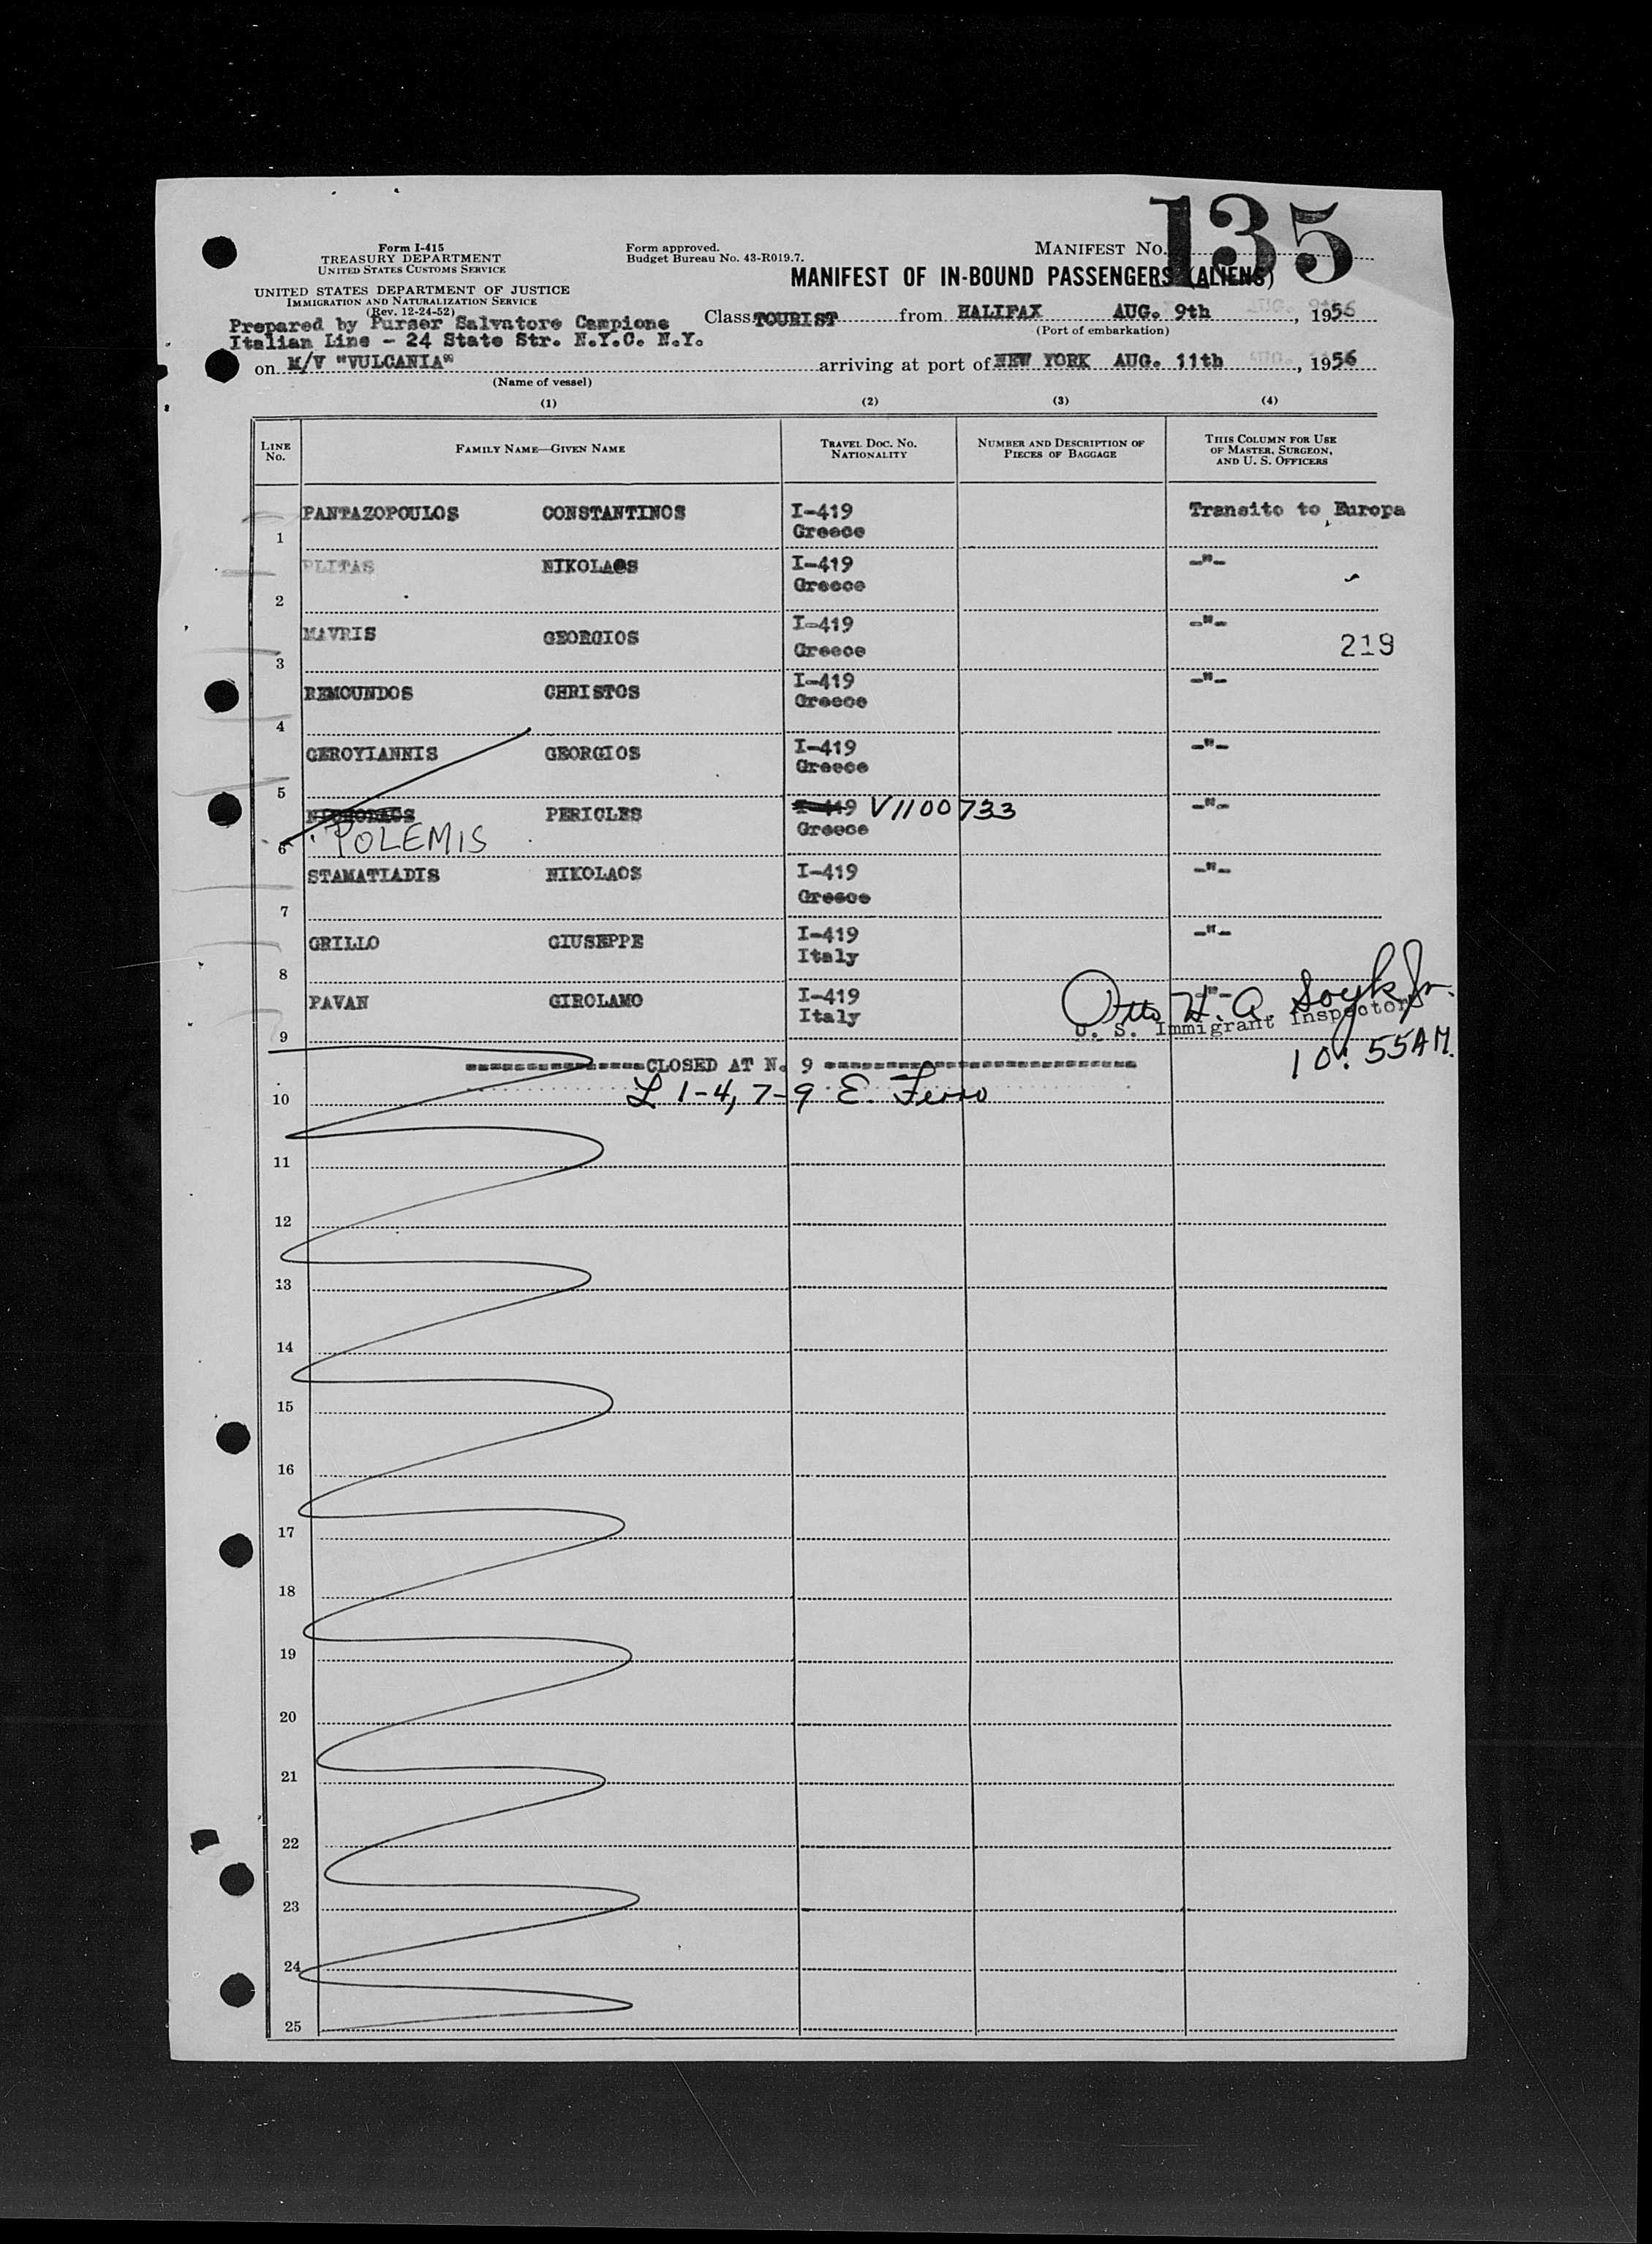 135
Form I-415
TREASURY DEPARTMENT
UNITED STATES CUSTOMS SERVICE
UNITED STATES DEPARTMENT OF JUSTICE
IMMIGRATION AND NATURALIZATION SERVICE
(Rev. 12-24-52)
Form approved.
Budget Bureau No. 43-R019.7.
MANIFEST NO.
MANIFEST OF IN-BOUND PASSENGERS (ALIENS)
Prepared by Purser Salvatore Campione
Italian Line - 24 State Str. N.Y.C. N.Y.
Class TOURIST from HALIFAX AUG. 9th, 1956
(Port of embarkation)
on M/V "VULCANIA" arriving at port of NEW YORK AUG. 11th, 1956
(Name of vessel)
(1) (2) (3) (4)
LINE No. FAMILY NAME—GIVEN NAME TRAVEL DOC. NO. NATIONALITY NUMBER AND DESCRIPTION OF PIECES OF BAGGAGE THIS COLUMN FOR USE OF MASTER, SURGEON, AND U. S. OFFICERS
1 PANTAZOPOULOS CONSTANTINOS I-419 Greece Transito to Europa
2 PLITAS NIKOLAOS I-419 Greece -"-
3 MAVRIS GEORGIOS I-419 Greece -"- 219
4 REMOUNDOS CHRISTOS I-419 Greece -"-
5 GEROYIANNIS GEORGIOS I-419 Greece -"-
6 POLEMIS PERICLES I-419 V1100733 Greece -"-
7 STAMATIADIS NIKOLAOS I-419 Greece -"-
8 GRILLO GIUSEPPE I-419 Italy -"-
9 PAVAN GIROLAMO I-419 Italy -"-
Otto H. A. Soyk Jr.
U. S. Immigrant Inspector
10:55 AM.
CLOSED AT N. 9
10 L 1-4, 7-9 E. Ferro
11
12
13
14
15
16
17
18
19
20
21
22
23
24
25